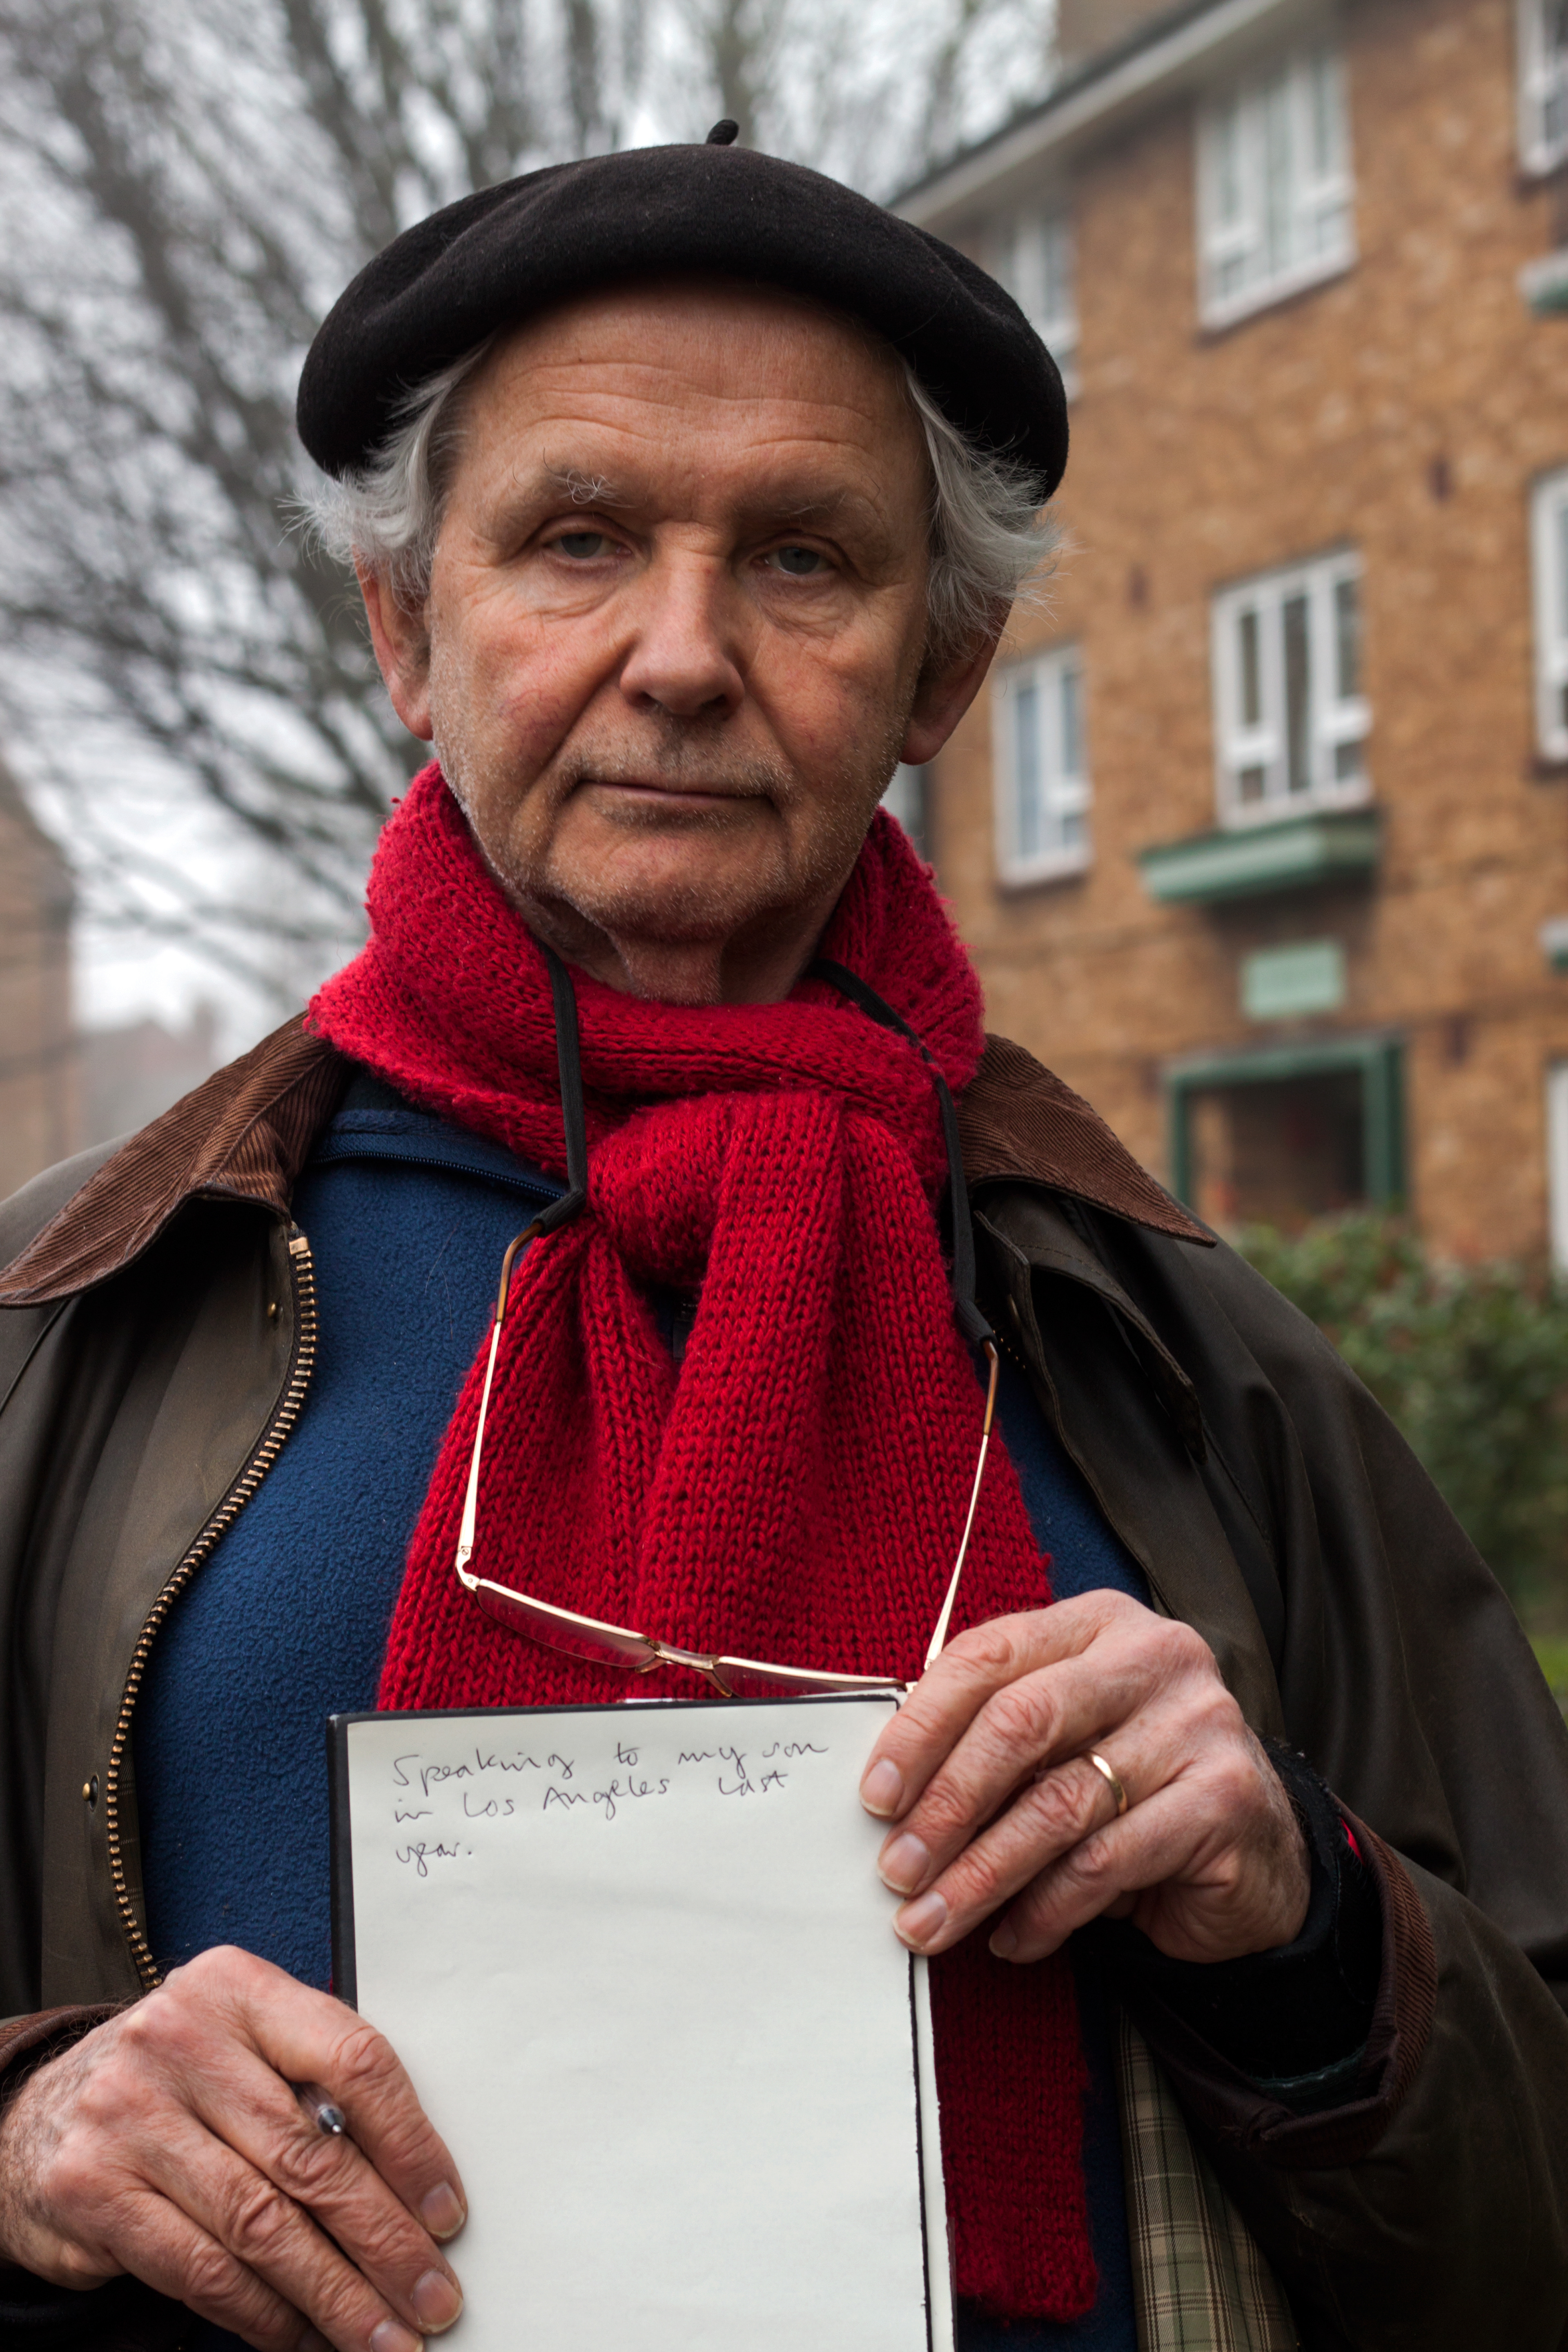 Speaking to my son
in Los Angeles last
year.